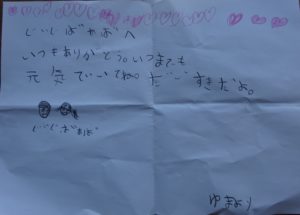 じいじばあばへ
いつもありがとう。いつまでも
元気でいてね。だいすきだよ。
じいじ ばあば
ゆまより